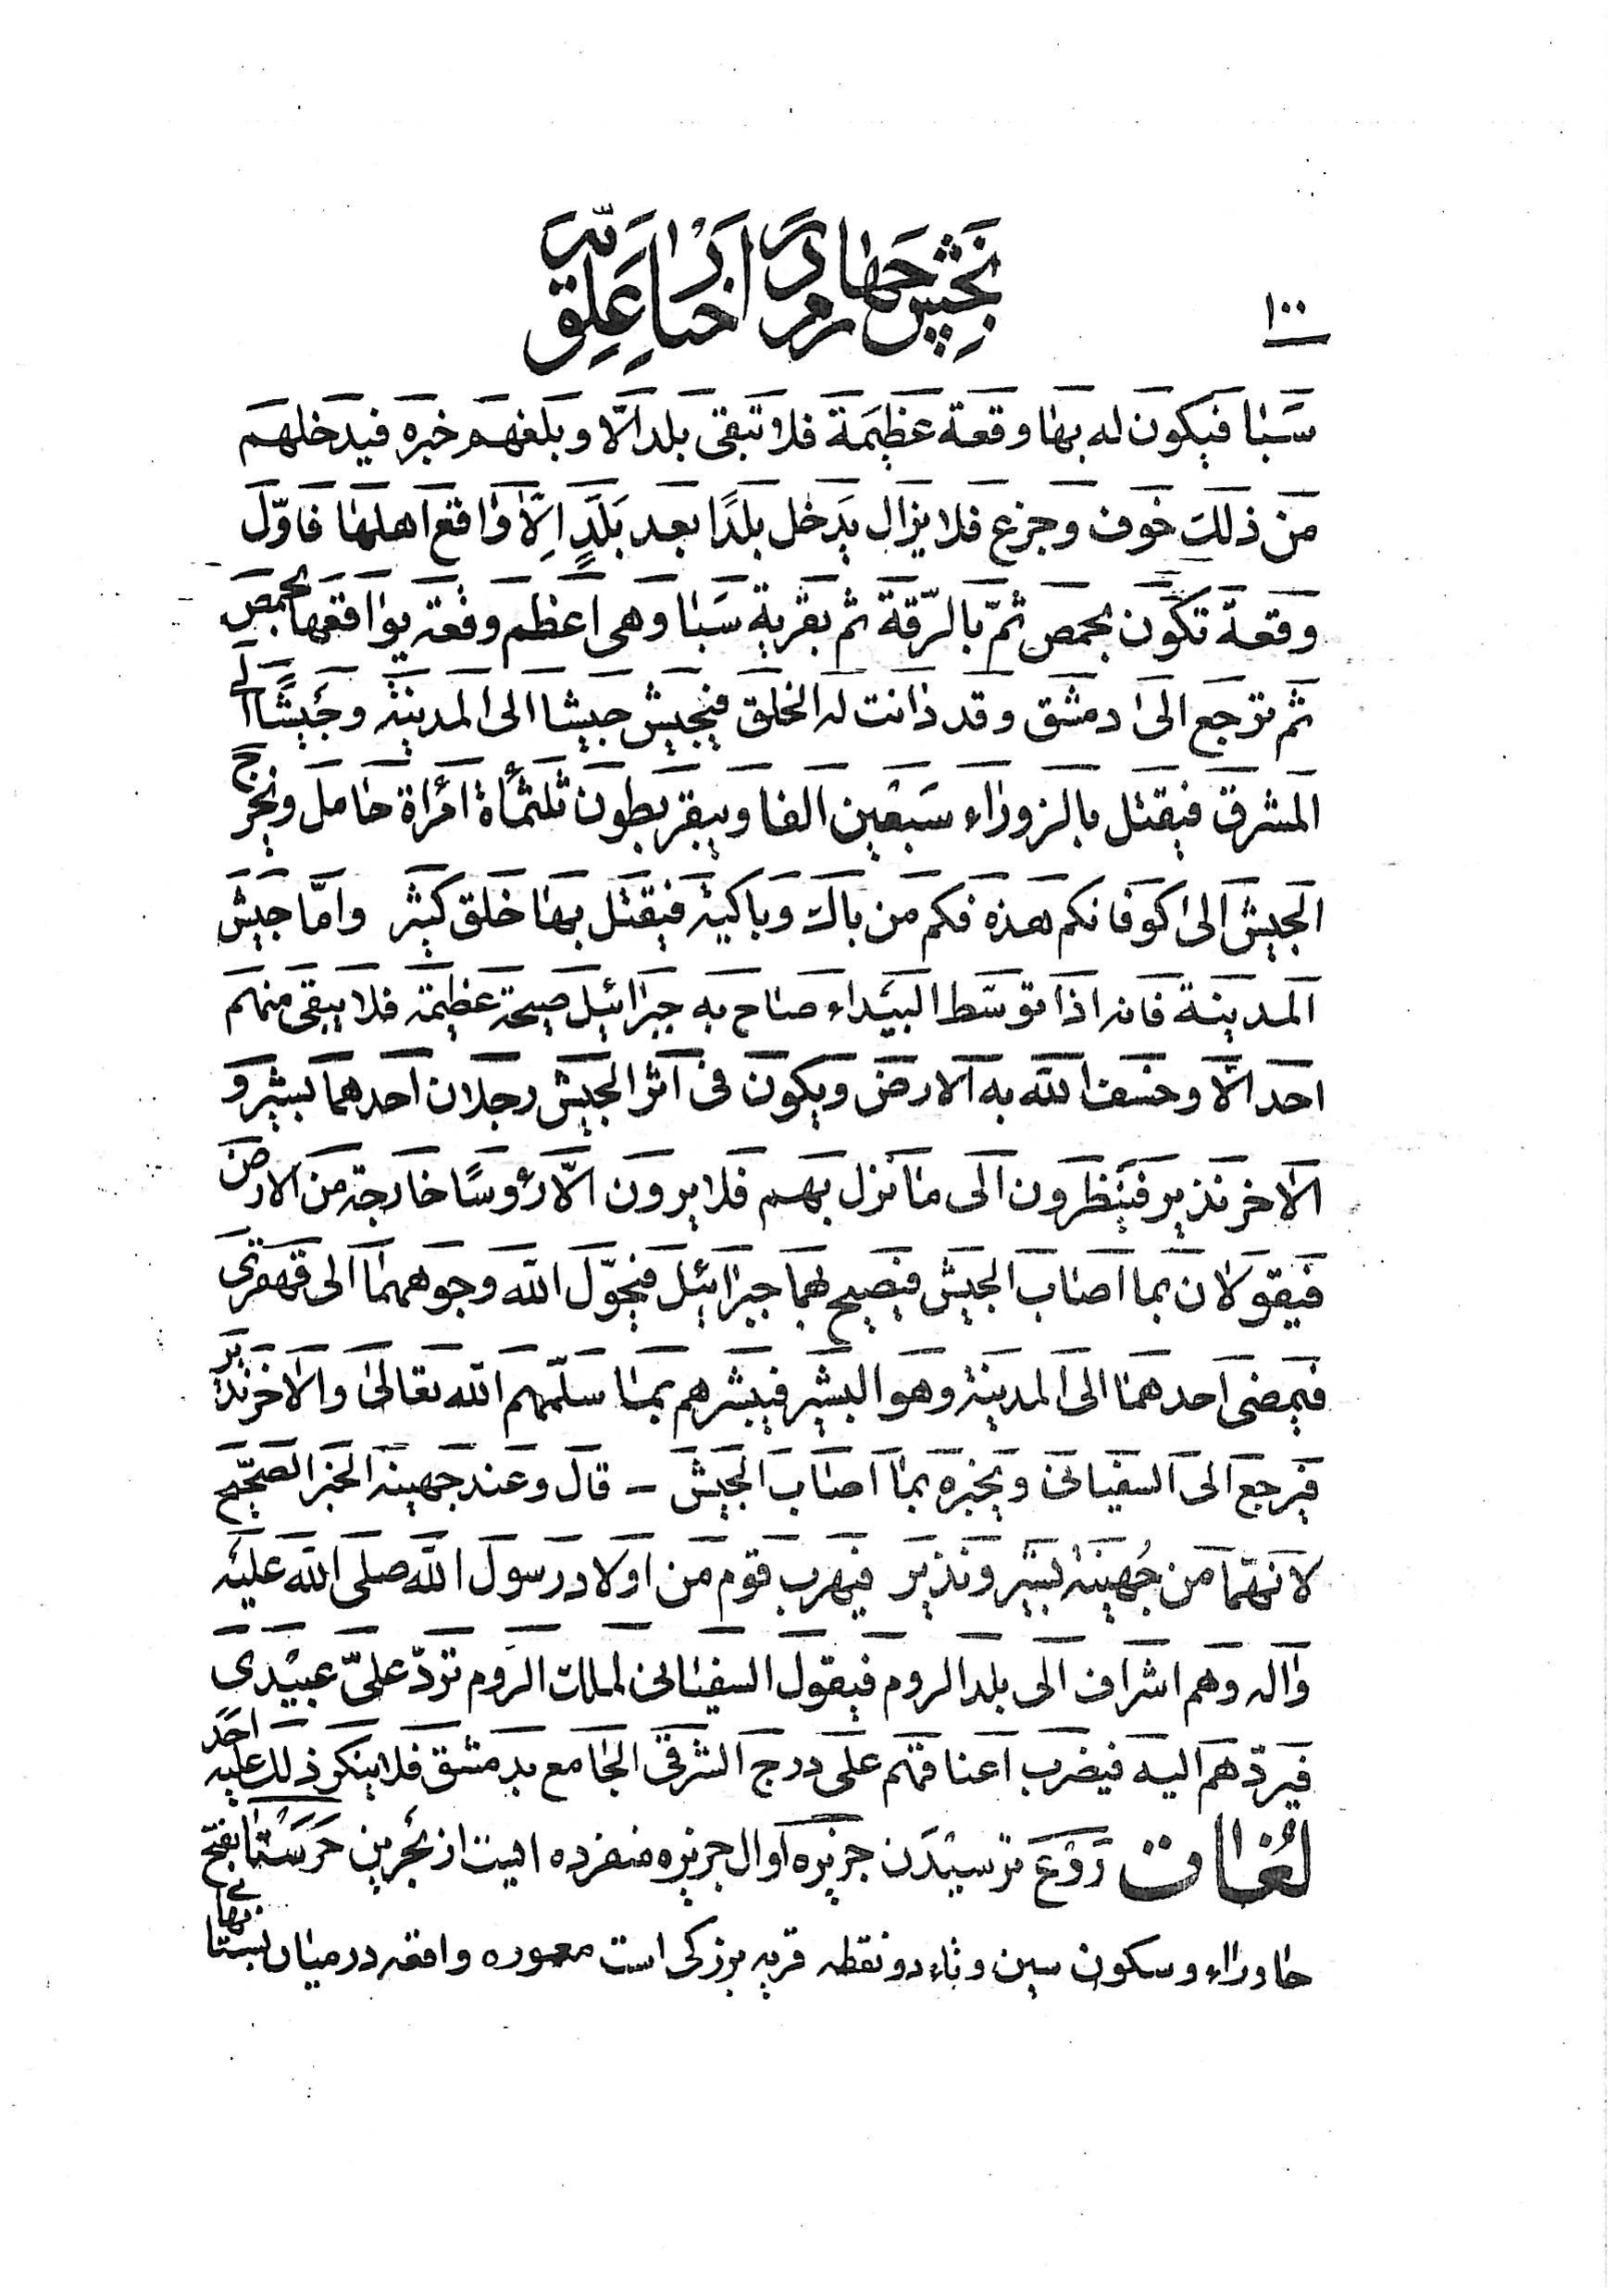 بخش چهارم در اخبار علویّه
۱۰۰
سَبا فیکون له بها وقعة عظیمَة فلا تبقی بلد الّا وبلغهم خبره فیدخلهم
من ذلک خوف وجزع فلا یزال یدخل بلدًا بعد بَلَدٍ اِلّا واقع اهلها فاوّل
وقعة تکون بحمص ثمّ بالرّقة ثم بقریة سَبا وهی اعظم وقعة یواقعها بحمص
ثم ترجع الی دمشق وقد دانت له الخلق فیجیش جیشا الی المدینة وجَیشًا الی
المشرق فیقتل بالزوراء سَبْعین الفا ویبقر بطون ثلثمأة امْراة حامل ویخرج
الجیش الی کوفانکم هذه فکم من باک وباکیة فیقتل بها خلق کثیر وامّا جیش
المدینة فانه اذا توسّط البیداء صاح به جبرائیل صیحة عظیمة فلا یبقی منهم
احد الّا وخسف الله به الارض ویکون فی اثر الجیش رجلان احدهما بشیر و
الاخر نذیر فینظرون الی ما نزل بهم فلا یرون الّا رؤوسًا خارجة من الارض
فیقولان بما اصاب الجیش فیصیح بهما جبرائیل فیحوّل الله وجوههما الی قهقری
فیمضی احدهما الی المدینة وهو البشیر فیبشرهم بما سلّمهم الله تعالی والاخر نذیر
فیرجع الی السفیانی ویخبره بما اصاب الجیش – قال وعند جهینة الخبر الصحیح
لانهما من جُهینَة بشیر ونذیر فیهرب قوم من اولاد رسول الله صلی الله علیه
واله وهم اشراف الی بلد الروم فیقول السفیانی لملک الروم تردّ علیّ عبیدی
فیردّهم الیه فیضرب اعناقهم علی درج الشرقی الجامع بدمشق فلا ینکر ذلک علیه احد
لغات رَوْع ترسیدن جزیره اوال جزیره منفرده ایست از بحرین حَرَسْتا بفتح
حا وراء وسکون سین وتاء دو نقطه قریه بزرکی است معموره واقعه در میان بستانهای